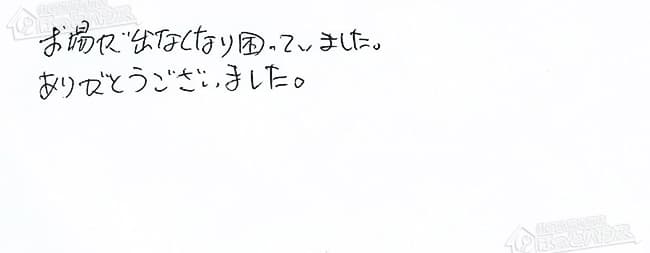 お場が出なくなり困っていました。
ありがとうございました。